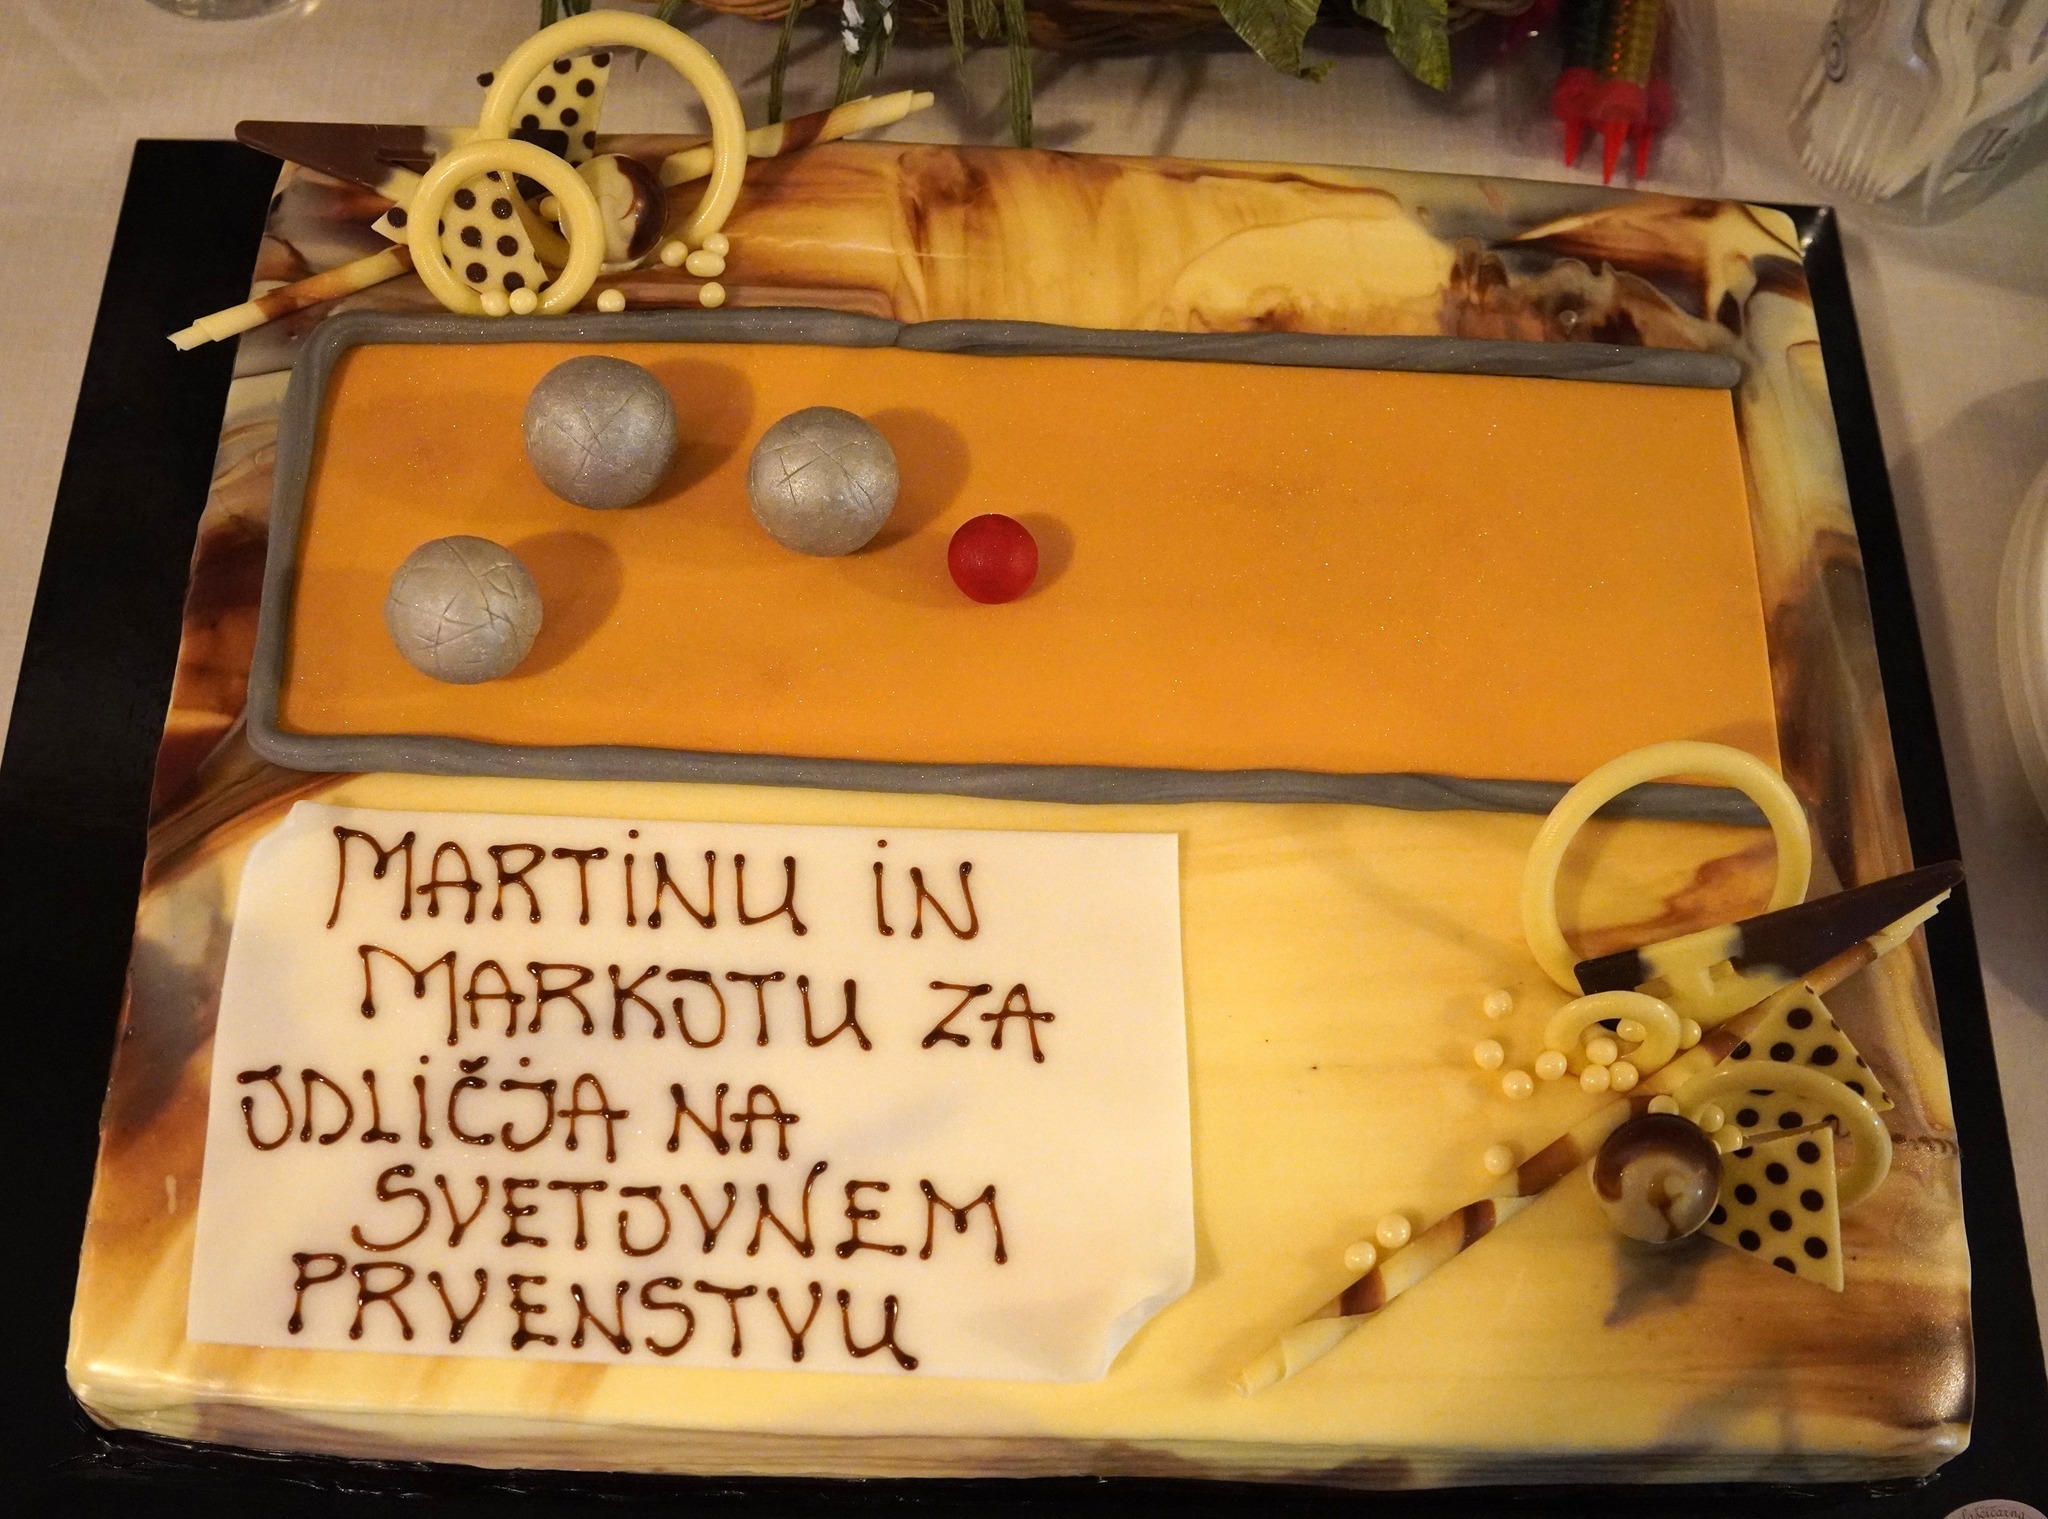 MARTINU IN
MARKOTU ZA
ODLIČJA NA
SVETOVNEM
PRVENSTVU